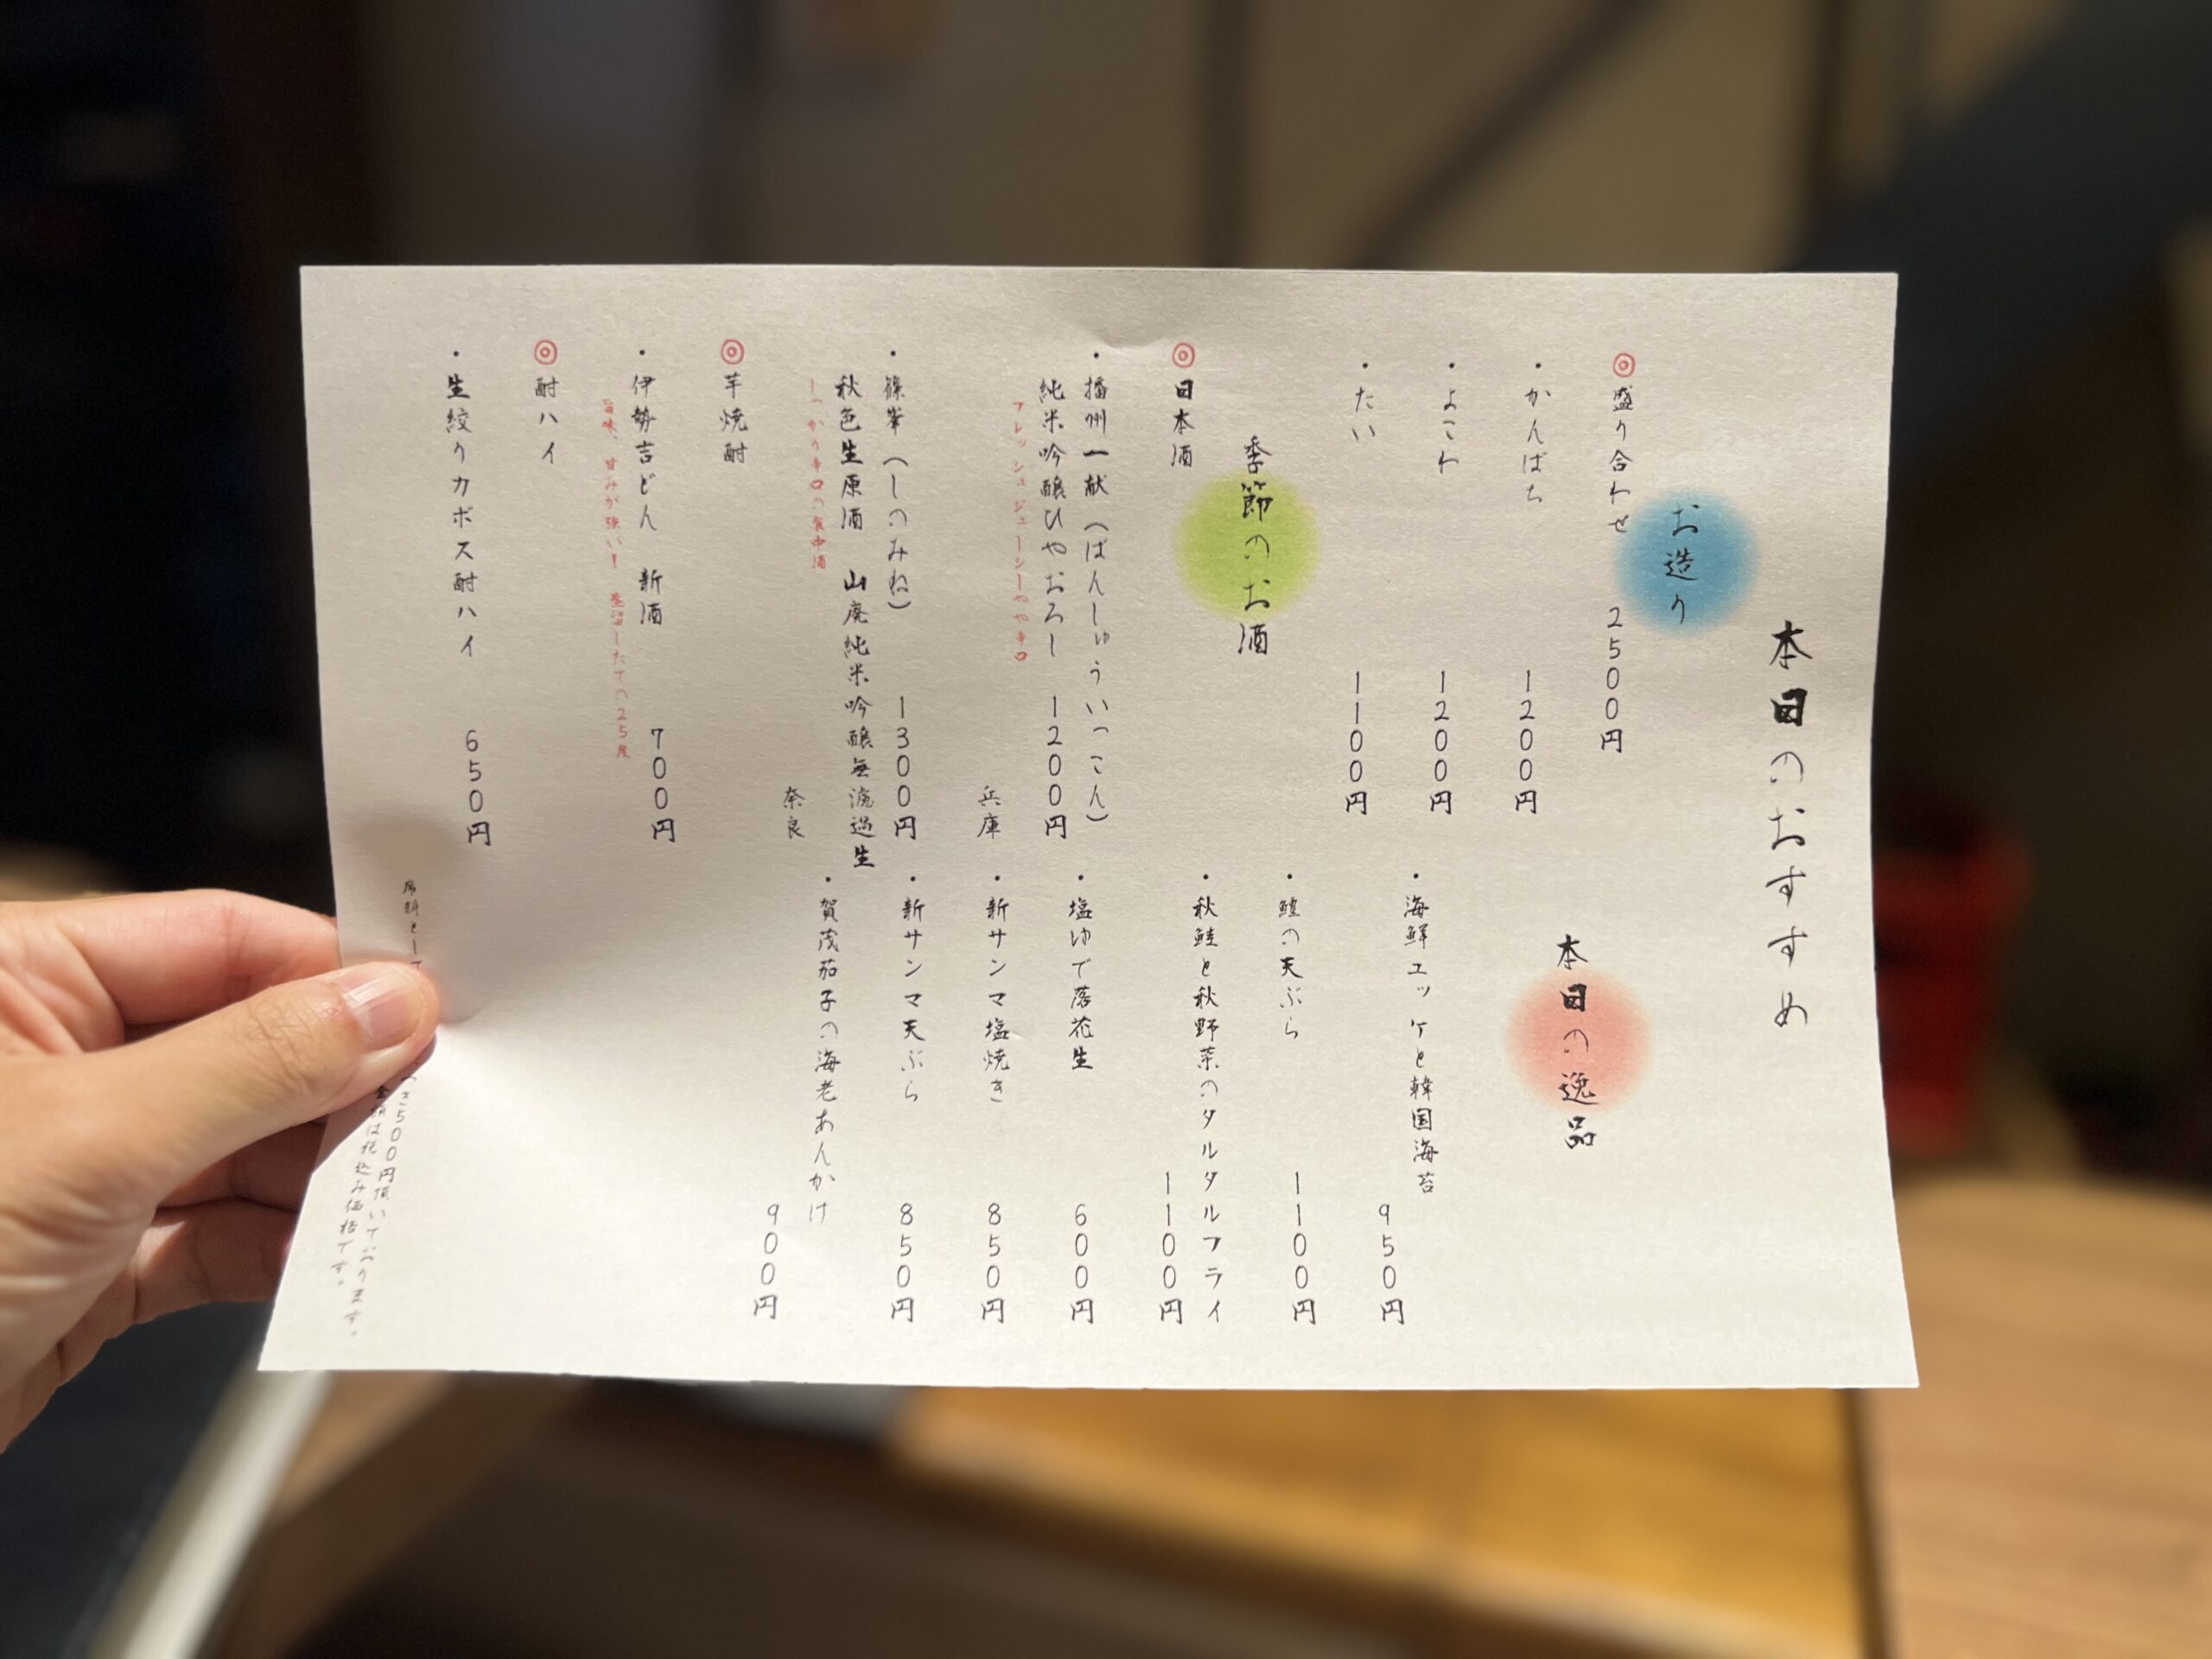 本日のおすすめ
お造り
◎盛り合わせ 2500円
・かんぱち 1200円
・よこわ 1200円
・たい 1100円
本日の逸品
・海鮮ユッケと韓国海苔
950円
・鱧の天ぷら 1100円
・秋鮭と秋野菜のタルタルフライ
1100円
・塩ゆで落花生 600円
・新サンマ塩焼き 850円
・新サンマ天ぷら 850円
・賀茂茄子の海老あんかけ
900円
季節のお酒
◎日本酒
・播州一献(ばんしゅういっこん)
純米吟醸ひやおろし 1200円
フレッシュジューシーやや辛口
兵庫
・篠峯(しのみね) 1300円
秋色生原酒 山廃純米吟醸無濾過生
しっかり辛口の食中酒
奈良
◎芋焼酎
・伊勢吉どん 新酒 700円
旨味、甘みが強い! 蒸留したての25度
◎酎ハイ
・生絞りカボス酎ハイ 650円
席料として つき500円頂いております。
金額は税込み価格です。